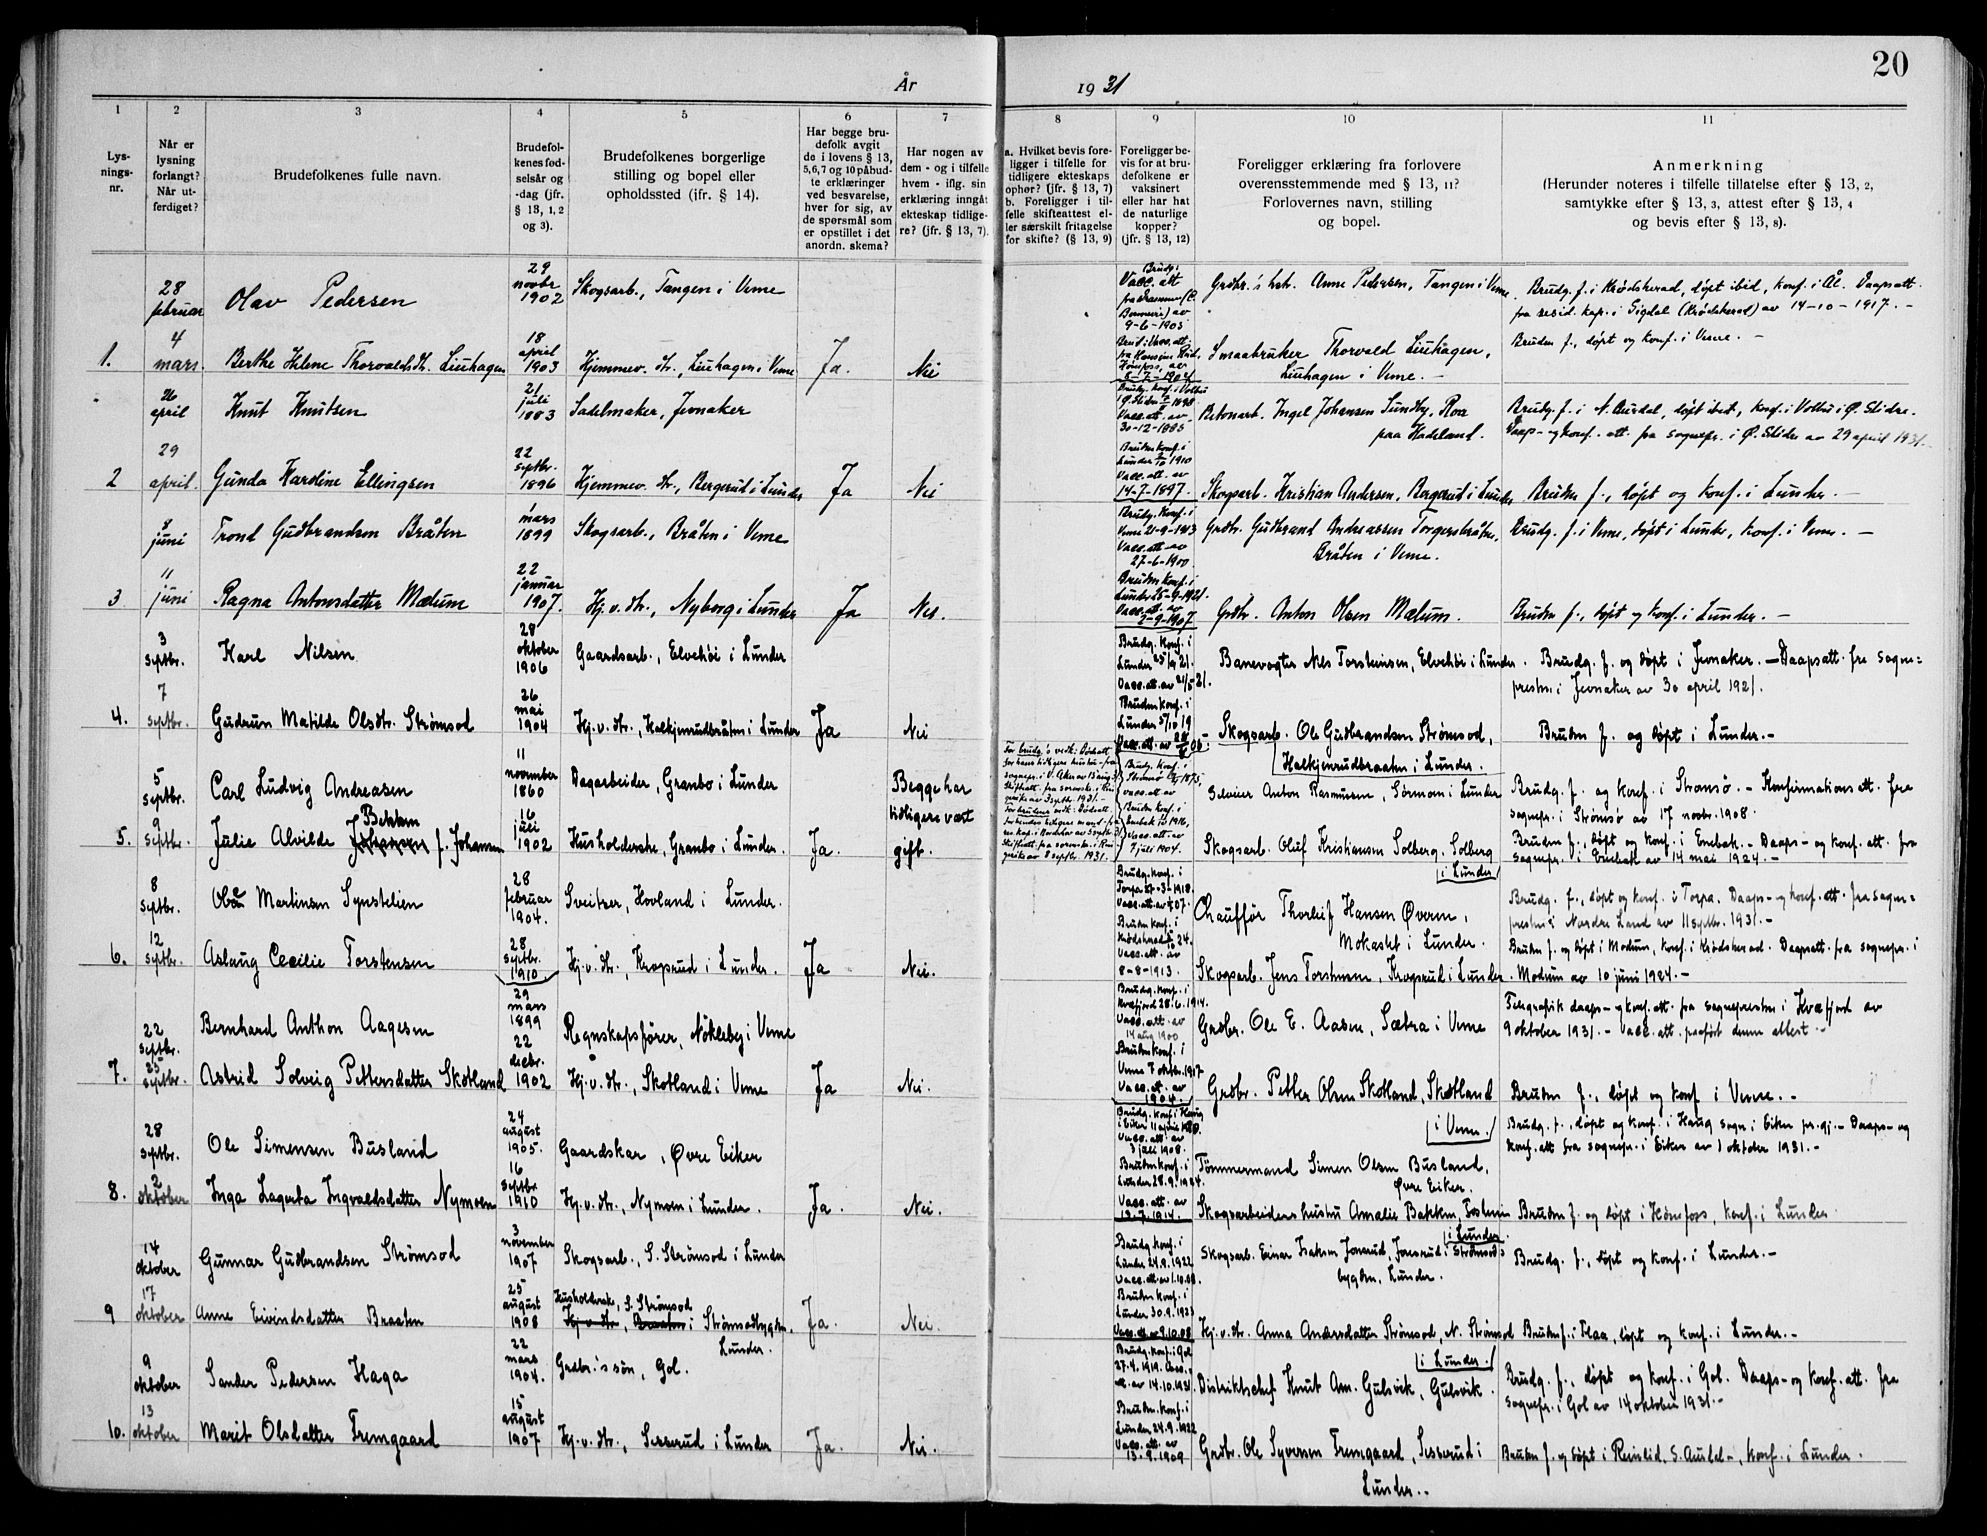 20
År
19 31
1
2
3
4
5
6
7
8
9
10
11
Lys-
nings-
nr.
Når er
lysning
forlangt?
Når ut-
ferdiget?
Brudefolkenes fulle navn.
Brudefol-
kenes fød-
selsår og
-dag (jfr.
§ 13, 1, 2
og 3).
Brudefolkenes borgerlige
stilling og bopel eller
opholdssted (ifr. § 14).
Har begge bru-
defolk avgit
de i lovens § 13,
5,6,7 og 10 påbud-
te erklæringer
ved besvarelse,
hver for sig, av
de spørsmål som
er opstillet i det
anordn. skema?
Har nogen av
dem - og i tilfelle
hvem - iflg. sin
erklæring inngåt
ekteskap tidlige-
re? (jfr. § 13, 7).
a. Hvilket bevis fore-
ligger i tilfelle for
tidligere ekteskaps
ophør? (jfr. § 13, 7)
b. Foreligger i til-
felle skifteattest el-
ler særskilt fritagelse
for skifte? (§ 13, 9)
Foreligger be-
vis for at bru-
defolkene er
vaksinert
eller har hat
de naturlige
kopper?
(jfr. § 13, 12)
Foreligger erklæring fra forlovere
overensstemmende med § 13, 11?
Forlovernes navn, stilling
og bopel.
Anmerkning
(Herunder noteres i tilfelle tillatelse efter § 13, 2,
samtykke efter § 13, 3, attest efter § 13, 4
og bevis efter § 13, 8).
28 februar
Olav Pedersen
29 novbr 1902
Skogsarb., Tangen i Veme
Brudg.:
Vacc. att
fra Drammen
9-6-1903
Grdbr.'s hst. Anne Pedersen, Tangen i Veme
Brudg. f. i Krødsherad, døpt ibid, konf. i Ål. Daapsatt.
fra resid. kap. i Sigdal (Krødsherad) av 14-10-1917. -
1.
4 mars.
Berthe Helene Thorvaldsdtr. Liuhagen
18 april 1903
Hjemmev. dtr., Liuhagen i Veme
Ja.
Nei
Smaabruker Thorvald Liuhagen,
Liuhagen i Veme. -
Bruden f., døpt og konf. i Veme. -
26 april
Knut Knutsen
21 juli 1883
Sadelmaker, Jevnaker
Vacc. att. av
30-12-1885
Betonarb. Ingel Johansen Sundby, Roa
paa Hadeland.
Brudg. f. i N. Aurdal, døpt ibid, konf. i Volbu i Ø. Slidre.
Daaps- og konf. att. fra sognepr. i Ø. Slidre av 29 april 1931. -
2
29 april.
Gunda Karoline Ellingsen
22 septbr. 1896
Hjemmev. dtr., Bergerud i Lunder
Ja
Nei
Bruden konf. i
Lunder 1910
Vacc. att. av
14-7-1897.
Skogsarb. Kristian Andersen, Bergerud i Lunder
Bruden f., døpt og konf. i Lunder. -
8 juni
Trond Gudbrandsen Bråten
1 mars 1899
Skogsarb., Bråten i Veme
Brudg. konf. i
Veme 21-9-1913
Vacc. att. av
27-6-1900.
Grdbr. Gudbrand Andreassen Torgersbråten,
Bråten i Veme.
Brudg. f. i Veme, døpt i Lunder, konf. i Veme. -
3
11 juni
Ragna Antonsdatter Mælum
22 januar 1907.
Hj. v. dtr., Nyborg i Lunder
Ja
Nei.
Bruden konf. i
Lunder 25-9-1921.
Vacc. att. av
2-9-1907
Grdbr. Anton Olsen Mælum.
Bruden f., døpt og konf. i Lunder. -
3 septbr.
Karl Nilsen
28 oktober 1906
Gaardsarb., Elvehøi i Lunder
Brudg. konf. i
Lunder 25/9 21.
Vacc. att. av 21/5 21.
Banevogter Nils Torsteinsen, Elvehøi i Lunder.
Brudg. f. og døpt i Jevnaker. - Daapsatt. fra sogne=
presten i Jevnaker av 30 april 1921.
4.
7 septbr.
Gudrun Matilde Olsdtr. Strømsod
26 mai 1904
Hj. v. dtr., Halkjenrudbråten i Lunder
Ja
Nei
Bruden konf. i
Lunder 5/10 19
Skogsarb. Ole Gudbrandsen Strømsod,
Halkjenrudbraaten i Lunder.
Bruden f. og døpt i Lunder. -
5 septbr.
Carl Ludvig Andreasen
11 november 1860
Dagarbeider, Granbo i Lunder
Begge har
tidligere vært
gift.
Brudg. konf. i
Strømsø 1875,
vacc. att. av
Selveier Anton Rasmussen, Sørmoen i Lunder
Brudg. f. og konf. i Strømsø. - Konfirmationsatt. fra
sognepr. i Strømsø av 17 novbr. 1908.
5.
9 septbr.
Bekken
Julie Alvilde Johansen f. Johansen
16 juli 1902
Husholderske, Granbo i Lunder.
Ja.
Bruden konf. i
Enebak 1916,
Vacc. att. av
7 juli 1904.
Skogsarb. Oluf Kristiansen Solberg, Solberg
i Lunder
Bruden f., døpt og konf. i Enebak. - Daaps- og konf. att. fra
sognepr. i Enebak av 14 mai 1924. -
8 septbr.
Martinsen Synstelien
28 februar 1904.
Sveitser, Hovland i Lunder.
Brudg. konf. i
Torpa 27-3-1918.
Chauffør Thorleif Hansen Øveren,
Mokastet i Lunder.
Brudg. f., døpt og konf. i Torpa. Daaps- og konf. att. fra sogne=
presten i Nordre Land av 11 septbr. 1931. -
6.
12 septbr.
Aslaug Cecilie Torstensen
28 septbr. 1910
Hj. v. dtr., Krogsrud i Lunder.
Ja
Nei.
Bruden konf. i
Krødsherad 24.
Vacc. att. av
8-8-1913.
Skogsarb. Jens Torstensen, Krogsrud i Lunder.
Bruden f. og døpt i Modum, konf. i Krødsherad. Daapsatt. fra sognepr. i
Modum av 10 juni 1924. -
22 septbr.
Bernhard Anthon Aagesen
29 mars 1899
Regnskapsfører, Nökleby i Veme
Brudg. konf. i
Kvæfjord 28.6.1914.
Vacc. att. av
14 aug 1900
Grdbr. Ole E. Aasen, Sætra i Veme
Telegrafisk daaps- og konf. att. fra sognepresten i Kvæfjord av
9 oktober 1931. - Vacc. att. paaført denne attest. -
7.
25 septbr.
Astrid Solveig Pettersdatter Skotland
22 decbr. 1902
Hj. v. dtr., Skotland i Veme
Ja
Nei.
Bruden konf. i
Veme 7 oktbr. 1917
Vacc. att. av
1904.
Grdbr. Petter Olsen Skotland, Skotland
i Veme.
Bruden f., døpt og konf i Veme. -
28 septbr.
Ole Simensen Busland
24 august 1905.
Gaardskar, Øvre Eiker
Brudg. konf. i Haug
i Eiker 11 april 1920.
Vacc. att. av
3 juli 1908.
Tømmermand Simen Olsen Busland,
Øvre Eiker.
Brudg. f., døpt og konf. i Haug sogn i Eiker pr.gj. - Daaps- og
konf. att fra sognepr. i Eiker av 1 oktober 1931. -
8.
2 oktober
Inga Lagerta Ingvaldsdatter Nymoen
16 septbr 1910
Hj. v. dtr., Nymoen i Lunder.
Ja.
Nei.
Bruden konf. i
Lunder 28.9.1924.
Vacc. att. av
13-7-1914.
Skogsarbeiders hustru Amalie Bakken, Foslien
i Lunder
Bruden f. og døpt i Hønefoss, konf. i Lunder
14 oktober
Gunnar Gudbrandsen Strømsod
3 november 1907
Skogsarb., S. Strømsod i Lunder
Brudg. konf. i
Lunder 24.9.1922
Vacc. att. av 1.10.08.
Skogsarb. Einar Isaksen Jonsrud, Jonsrud i Strømsods
bygden, Lunder.
Brudg. f., døpt og konf. i Lunder. -
9
17 oktober
Anne Eivindsdatter Braaten
25 august 1908
Husholderske, S. Strømsod
Hj v dtr, Braaten i Strømsodbygden.
Lunder.
Ja.
Nei.
Bruden konf. i
Lunder 30.9.1923
Vacc. att. av 9.10.08
Hj. v. dtr. Anna Andersdatter Strømsod, N. Strømsod
i Lunder.
Bruden f. i Flaa, døpt og konf. i Lunder. -
9 oktober
Sander Pedersen Haga
22 mars 1904.
Grdbr.'s søn, Gol.
Brudg. konf. i Gol
27.4.1919. Vacc.
att. av 14.10.1931.
Distriktschef Knut Am. Gulsvik, Gulsvik.
Brudg. f., døpt og konf. i Gol. Daaps- og konf. att. fra
sognepr. i Gol av 14 oktober 1931. -
10.
13 oktober
Marit Olsdatter Fremgaard
15 august 1907
Hj. v. dtr., Sesserud i Lunder
Ja.
Nei.
Bruden konf. i
Lunder 24.9.1922
Vacc. att. av
13.9.1909
Grdbr. Ole Syversen Fremgaard, Sesserud i
Lunder. -
Bruden f. og døpt i Reinlid, S. Aurdal-, konf. i Lunder.